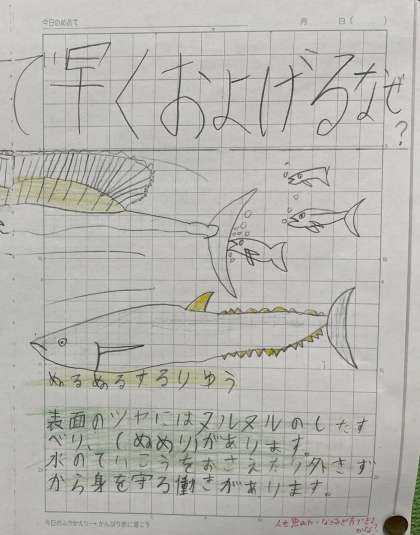 今日のめあて 月 日( )
で早くおよげるなぜ?
ぬるぬるするりゆう
表面のツヤにはヌルヌルのしたす
べり、(ぬめり)があります。
水のていこうをおさえたり外さず
から身を守る働きがあります。
今日のふりかえり→がんばり